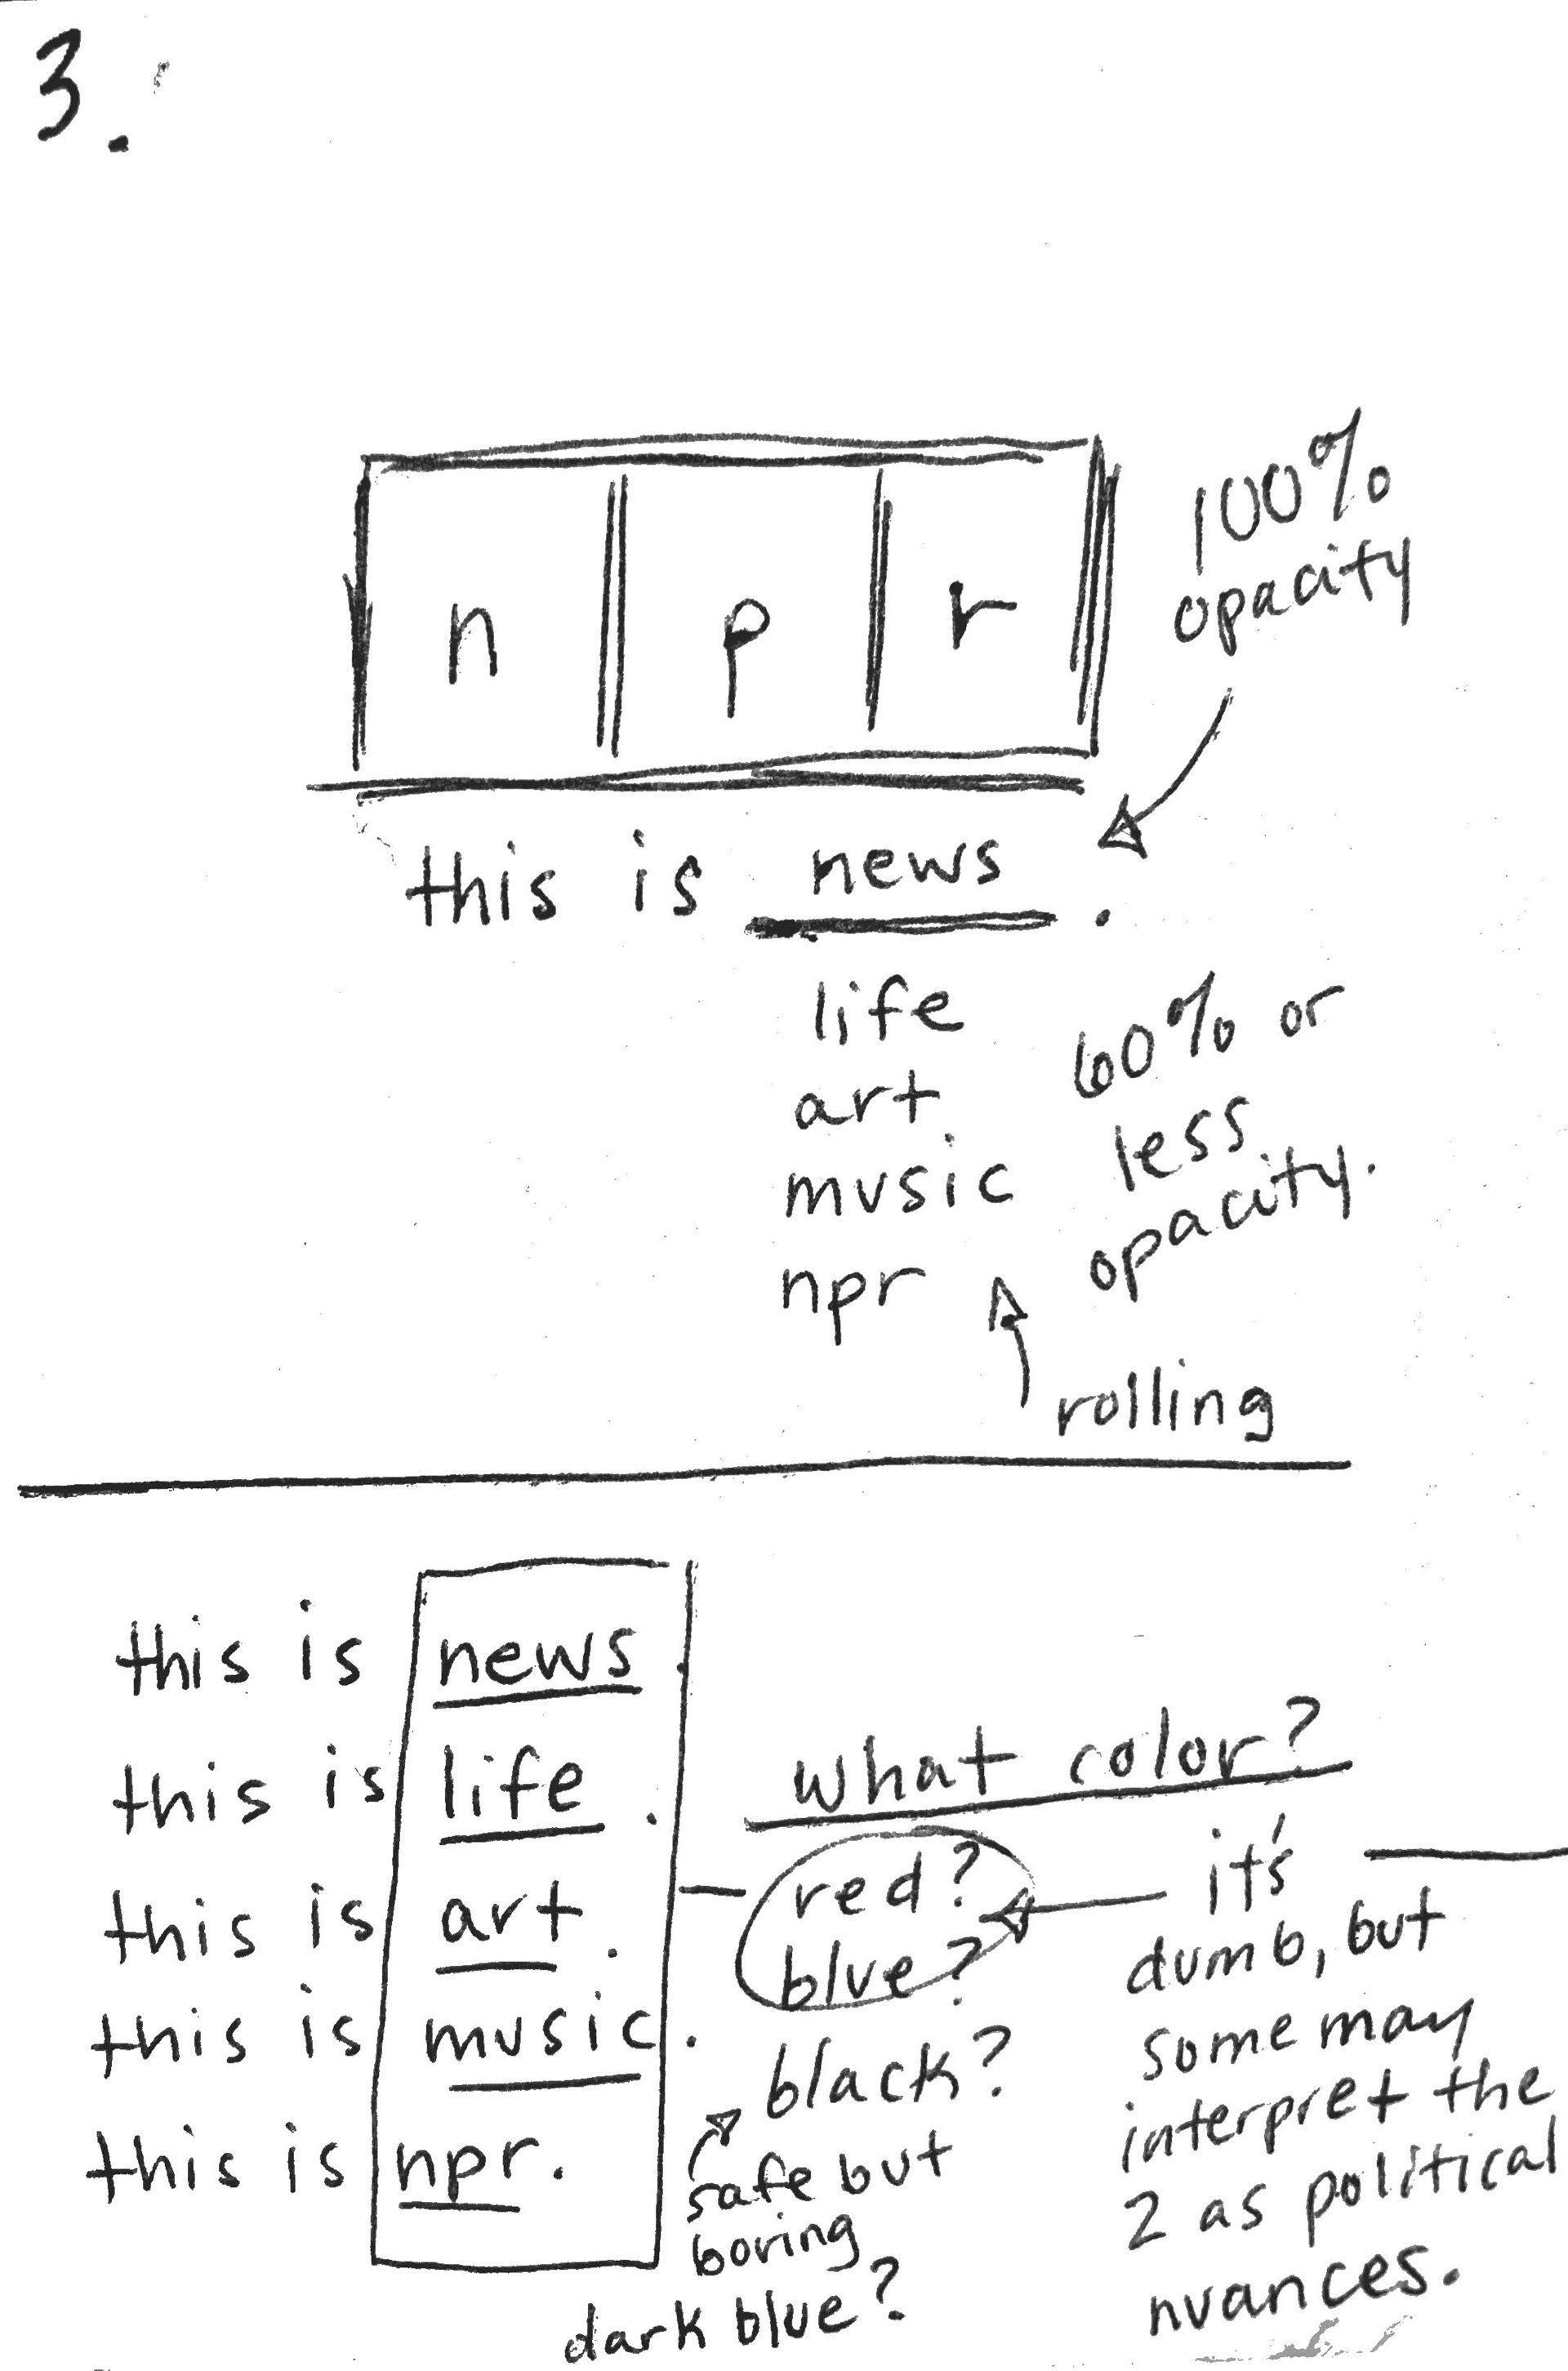 3.
n p r
100%
opacity
this is news.
life
art
music
npr
60% or
less
opacity.
rolling
this is news.
this is life.
this is art.
this is music.
this is npr.
what color?
red?
blue?
black?
safe but
boring
dark blue?
it's
dumb, but
some may
interpret the
2 as political
nuances.